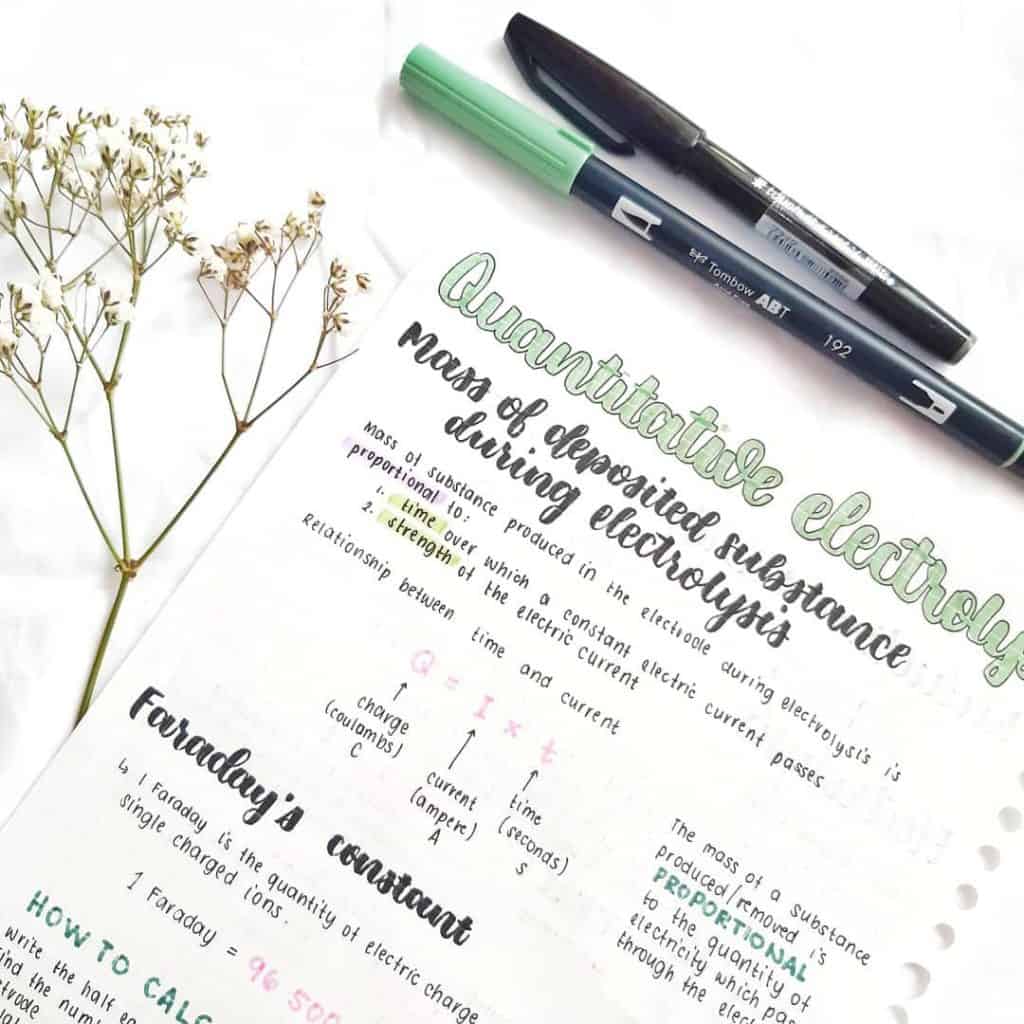 Tombow ABT
192
Quantitative
Mass of deposited substance
during electrolysis
Mass of substance produced in the electrode during electrolysis is
proportional to:
1. time over which a constant electric current passes
2. strength of the electric current
Relationship between time and current
Q = I x t
charge
(coulambs)
C
current
(ampere)
A
time
(seconds)
S
Faraday's constant
↳ 1 Faraday is the quantity of electric charge
single charged ions.
1 Faraday = 96 500
The mass of a substance
produced/removed is
PROPORTIONAL
to the quantity of
electricity which
through the
HOW TO
write the half
the